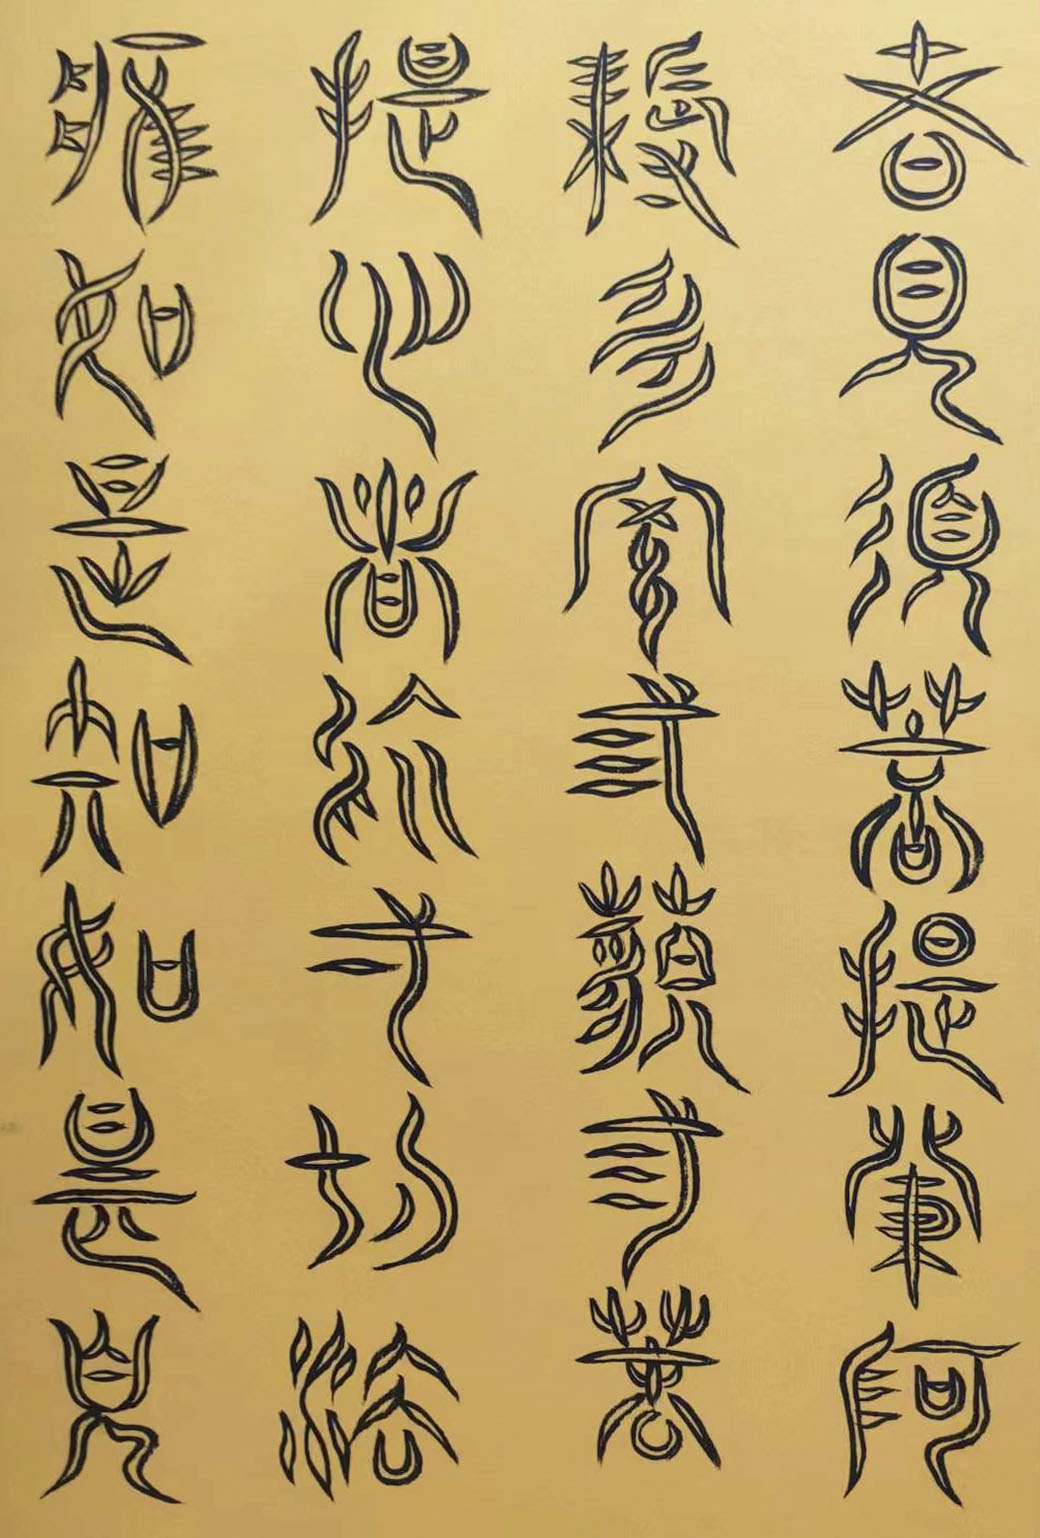 者見須菩提發阿
耨多羅三藐三菩
提心者於一切法
應如是知如是見